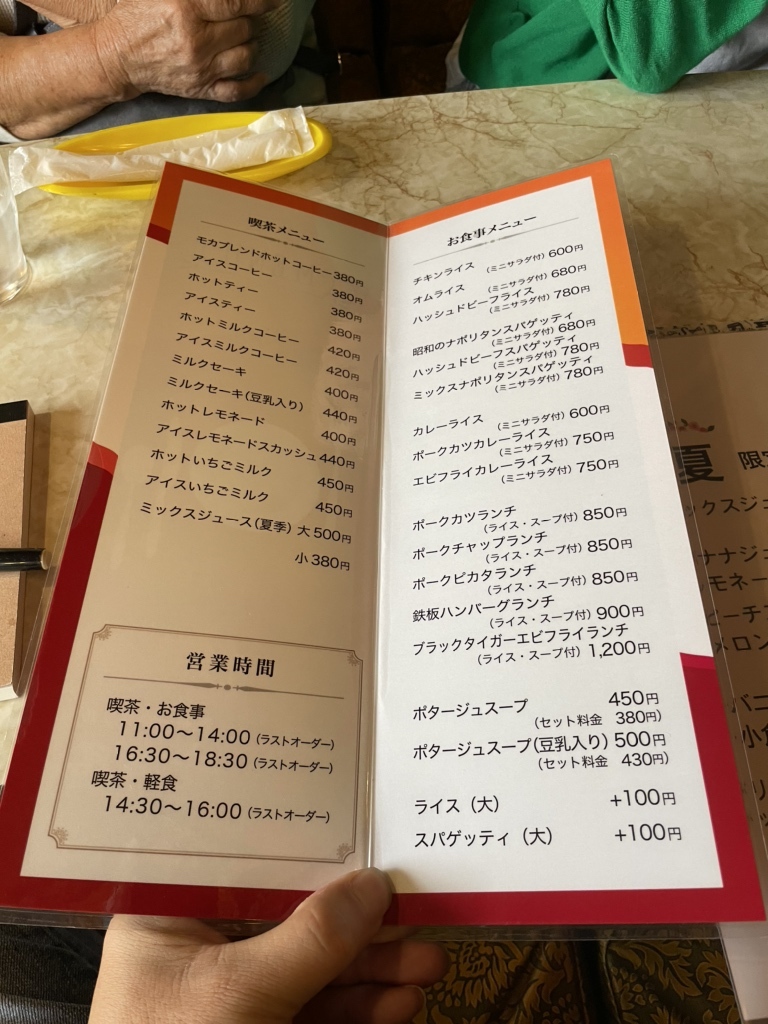 喫茶メニュー
モカブレンドホットコーヒー 380円
アイスコーヒー 380円
ホットティー 380円
アイスティー 380円
ホットミルクコーヒー 420円
アイスミルクコーヒー 420円
ミルクセーキ 400円
ミルクセーキ(豆乳入り) 440円
ホットレモネード 400円
アイスレモネードスカッシュ 440円
ホットいちごミルク 450円
アイスいちごミルク 450円
ミックスジュース(夏季) 大 500円
小 380円
営業時間
喫茶・お食事
11:00〜14:00 (ラストオーダー)
16:30〜18:30 (ラストオーダー)
喫茶・軽食
14:30〜16:00 (ラストオーダー)
お食事メニュー
チキンライス (ミニサラダ付) 600円
オムライス (ミニサラダ付) 680円
ハッシュドビーフライス
(ミニサラダ付) 780円
昭和のナポリタンスパゲッティ
(ミニサラダ付) 680円
ハッシュドビーフスパゲッティ
(ミニサラダ付) 780円
ミックスナポリタンスパゲッティ
(ミニサラダ付) 780円
カレーライス (ミニサラダ付) 600円
ポークカツカレーライス
(ミニサラダ付) 750円
エビフライカレーライス
(ミニサラダ付) 750円
ポークカツランチ
(ライス・スープ付) 850円
ポークチャップランチ
(ライス・スープ付) 850円
ポークピカタランチ
(ライス・スープ付) 850円
鉄板ハンバーグランチ
(ライス・スープ付) 900円
ブラックタイガーエビフライランチ
(ライス・スープ付) 1,200円
ポタージュスープ 450円
(セット料金 380円)
ポタージュスープ(豆乳入り) 500円
(セット料金 430円)
ライス(大) +100円
スパゲッティ(大) +100円
夏